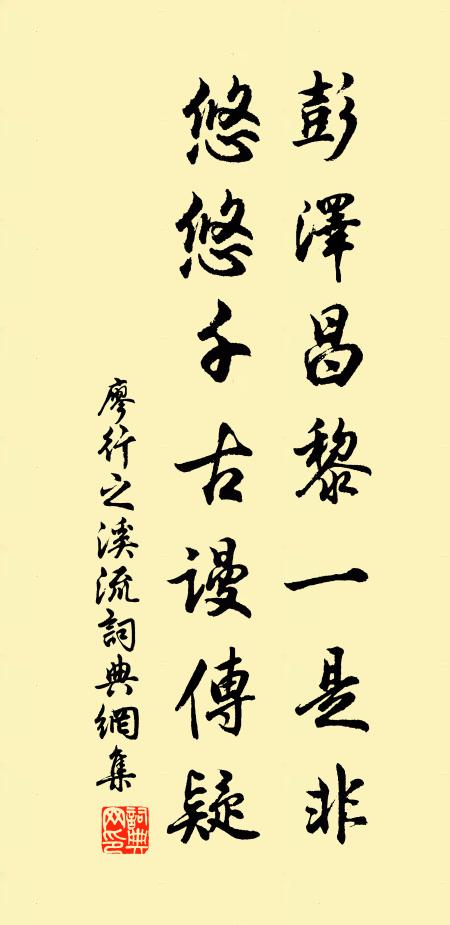 彭澤昌黎一是非
悠悠千古謾傳疑
廖行之溪流詞典網集
詞典网印